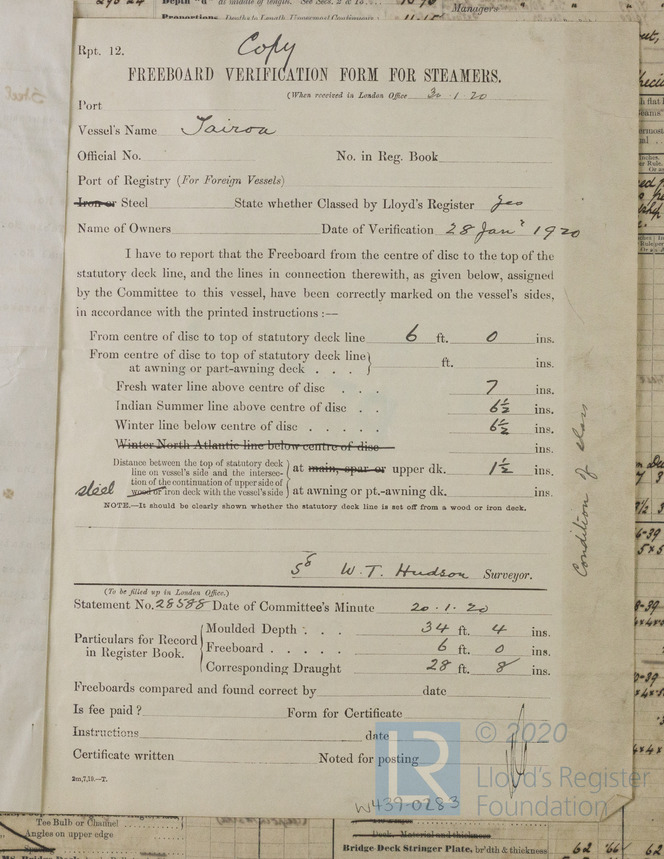 Depth "d" at middle of length. See Secs. 2 & 10
Managers
Proportions.
Rpt. 12.
Copy
FREEBOARD VERIFICATION FORM FOR STEAMERS.
(When received in London Office 30.1.20
Port
Vessel's Name Tairoa
Official No. No. in Reg. Book
Port of Registry (For Foreign Vessels)
Iron or Steel State whether Classed by Lloyd's Register Yes
Name of Owners Date of Verification 28 Jany 1920
I have to report that the Freeboard from the centre of disc to the top of the
statutory deck line, and the lines in connection therewith, as given below, assigned
by the Committee to this vessel, have been correctly marked on the vessel's sides,
in accordance with the printed instructions :—
From centre of disc to top of statutory deck line 6 ft. 0 ins.
From centre of disc to top of statutory deck line
at awning or part-awning deck . . . ft. ins.
Fresh water line above centre of disc . . . 7 ins.
Indian Summer line above centre of disc . . 6½ ins.
Winter line below centre of disc . . . . . 6½ ins.
Winter North Atlantic line below centre of disc ins.
Distance between the top of statutory deck
line on vessel's side and the intersec-
tion of the continuation of upper side of
steel wood or iron deck with the vessel's side
at main, spar or upper dk. 1½ ins.
at awning or pt.-awning dk. ins.
NOTE.—It should be clearly shown whether the statutory deck line is set off from a wood or iron deck.
Condition of class
W. T. Hudson Surveyor.
(To be filled up in London Office.)
Statement No. 28588 Date of Committee's Minute 20.1.20
Particulars for Record
in Register Book.
Moulded Depth . . . 34 ft. 4 ins.
Freeboard . . . . . 6 ft. 0 ins.
Corresponding Draught 28 ft. 8 ins.
Freeboards compared and found correct by date
Is fee paid? Form for Certificate
Instructions date
Certificate written Noted for posting
2m,7,19.—T.
LR
© 2020
Lloyd's Register
Foundation
W439-0283
Tee Bulb or Channel
Angles on upper edge
Deck, Material and thickness
Bridge Deck Stringer Plate, br'dth & thickness 62 .66 62